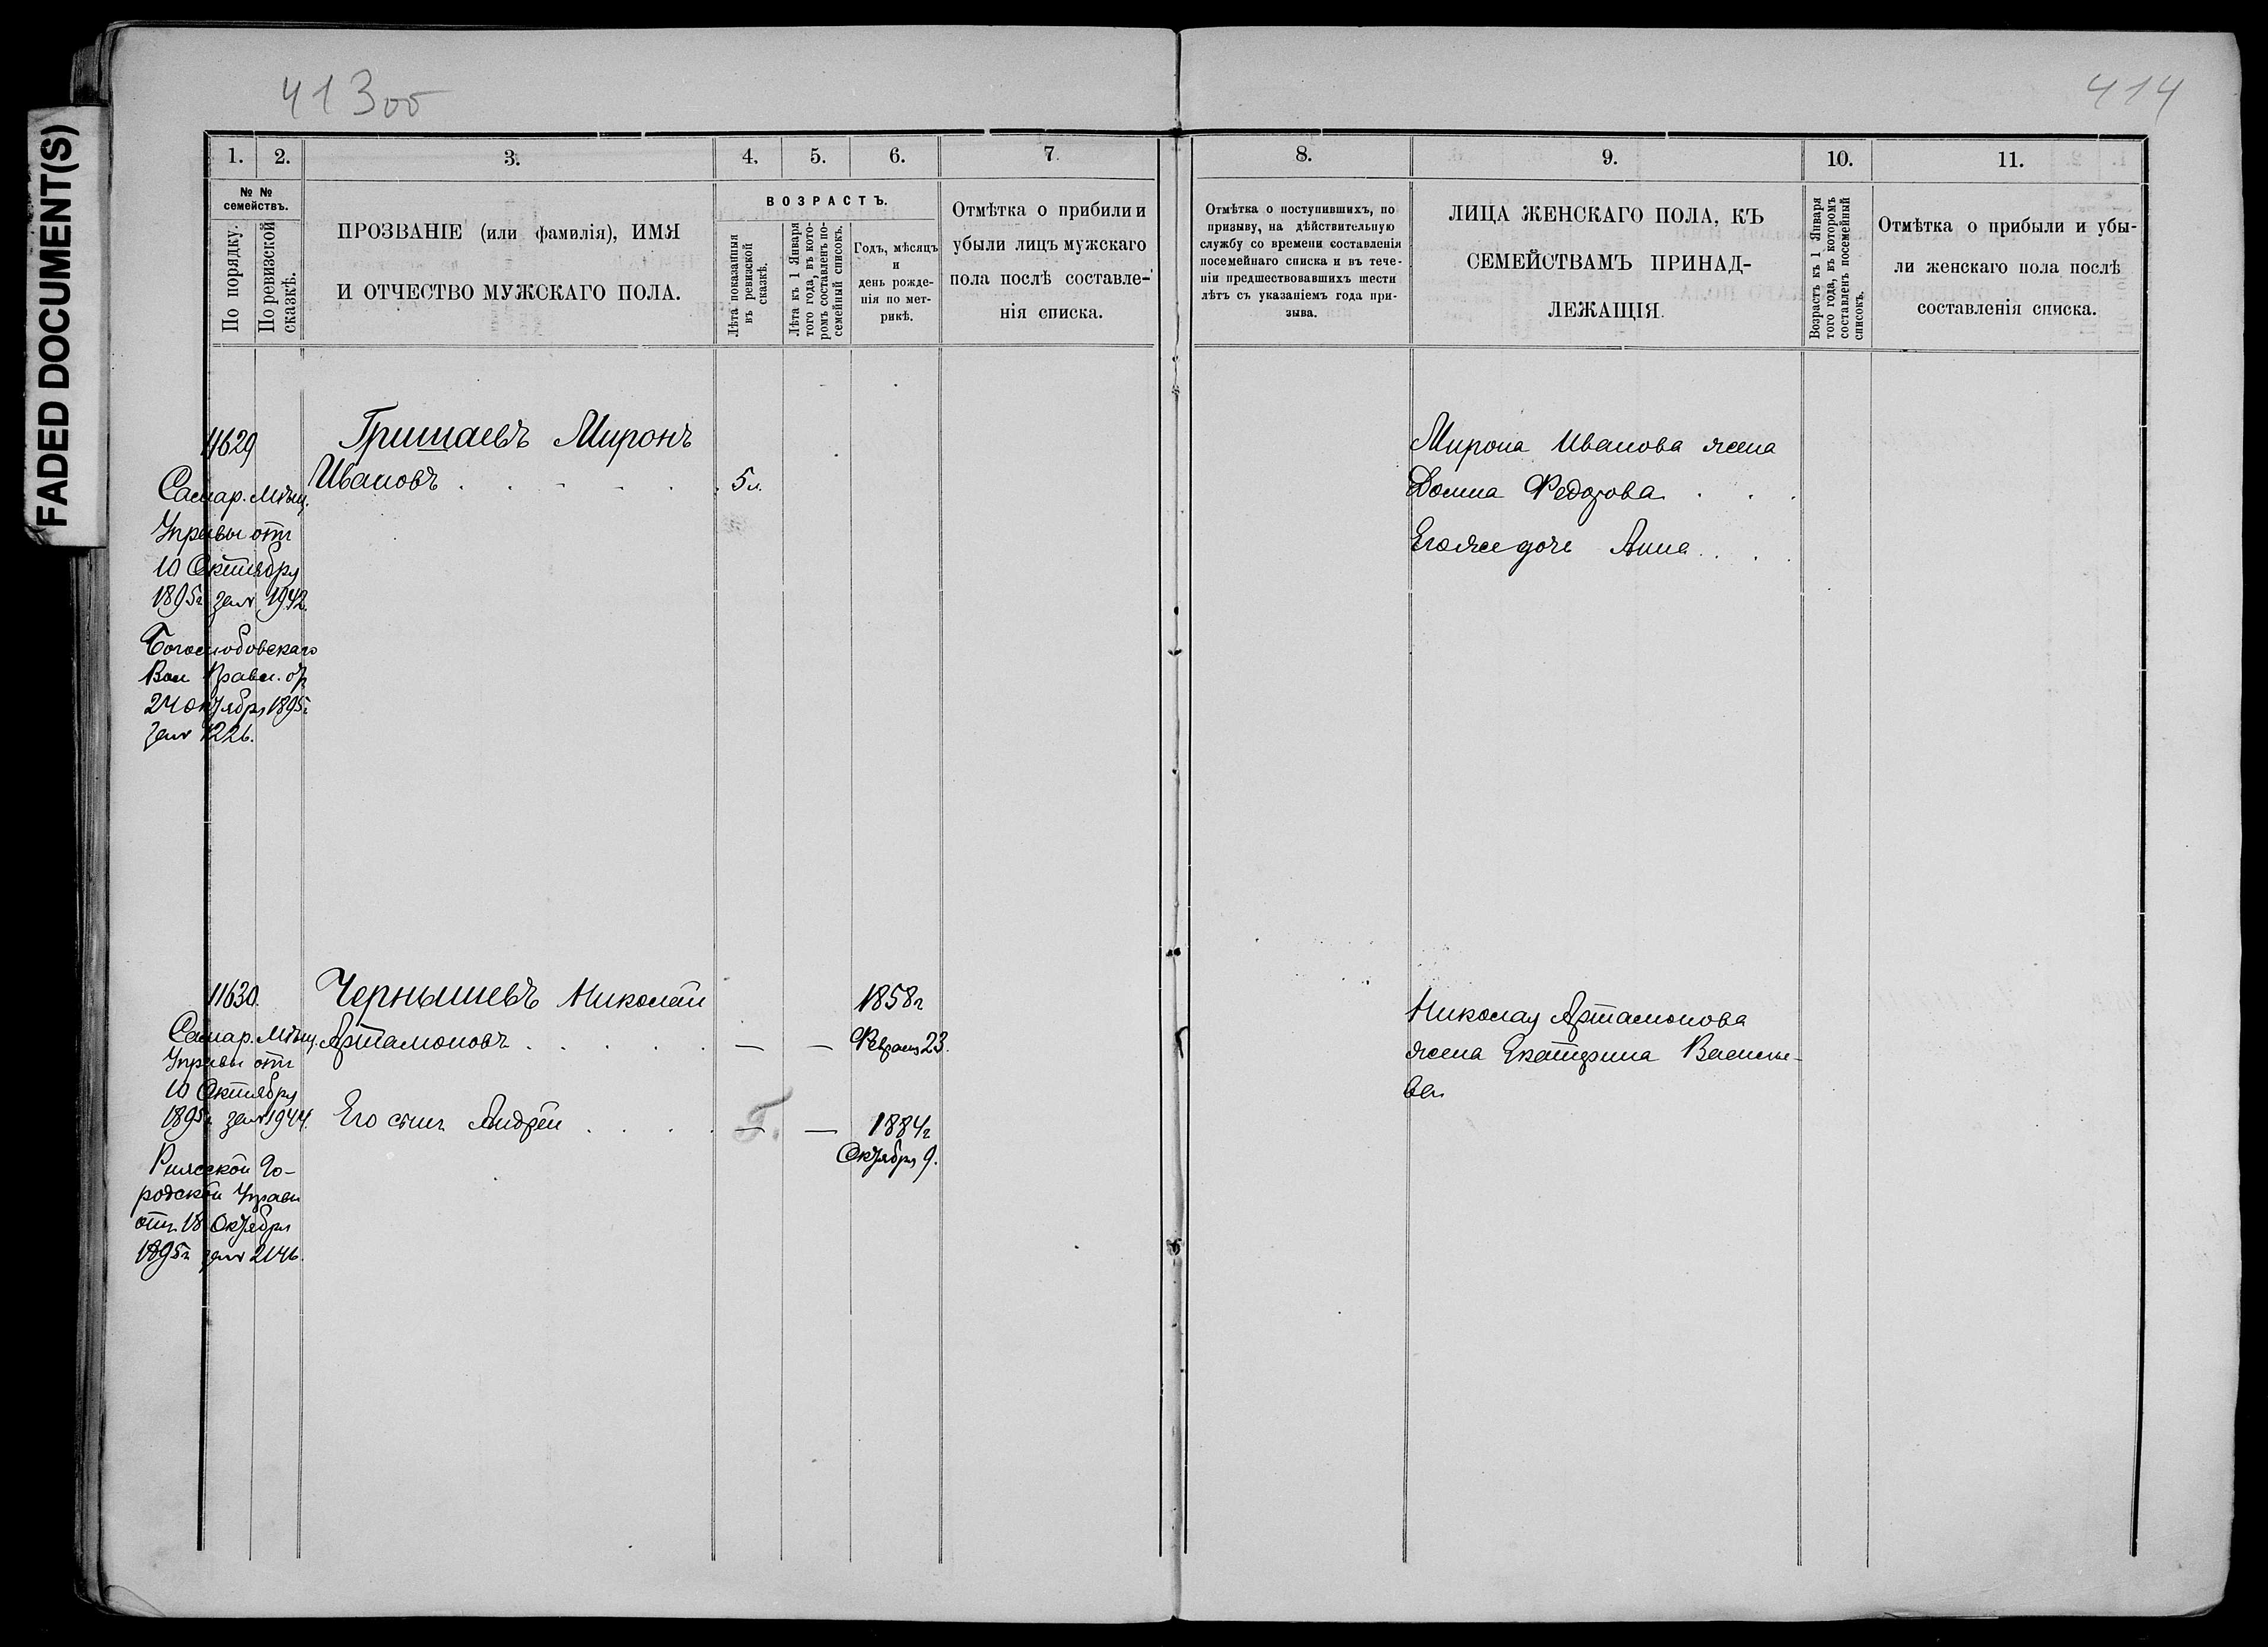 413об
414
FADED DOCUMENT(S)
1.
2.
3.
4.
5.
6.
7.
№ №
семействъ.
По порядку.
По ревизской
сказкѣ.
ПРОЗВАНІЕ (или фамилія), ИМЯ
И ОТЧЕСТВО МУЖСКАГО ПОЛА.
ВОЗРАСТЪ.
Лѣта показанныя
въ ревизской
сказкѣ.
Лѣта къ 1 Января
того года, въ кото-
ромъ составленъ по-
семейный списокъ.
Годъ, мѣсяцъ
и
день рожде-
нія по мет-
рикѣ.
Отмѣтка о прибыли и
убыли лицъ мужскаго
пола послѣ составле-
нія списка.
8.
9.
10.
11.
Отмѣтка о поступившихъ, по
призыву, на дѣйствительную
службу со времени составленія
посемейнаго списка и въ тече-
ніи предшествовавшихъ шести
лѣтъ съ указаніемъ года при-
зыва.
ЛИЦА ЖЕНСКАГО ПОЛА, КЪ
СЕМЕЙСТВАМЪ ПРИНАД-
ЛЕЖАЩІЯ.
Возрастъ къ 1 Января
того года, въ которомъ
составленъ посемейный
списокъ.
Отмѣтка о прибыли и убы-
ли женскаго пола послѣ
составленія списка.
11629
Самар. Мѣщ.
Управы отъ
10 Октября
1895г за № 1942.
Боголюбовскаго
Вол Правл. от
24 октября 1895г
за № 1226.
Гришаевъ Миронъ
Ивановъ
5 л.
Мирона Иванова жена
Домна Федорова
Его же дочь Анна
11630
Самар. Мѣщ.
Управы отъ
10 Октября
1895г за № 1944.
Ряжской Го-
родской Управы
отъ 18 Октября
1895г за № 2146.
Чернышевъ Николай
Артамоновъ
— — 1858г
Февраля 23.
Его сынъ Андрей
— — 1884г
Октября 9.
Николая Артамонова
жена Екатерина Василье-
ва